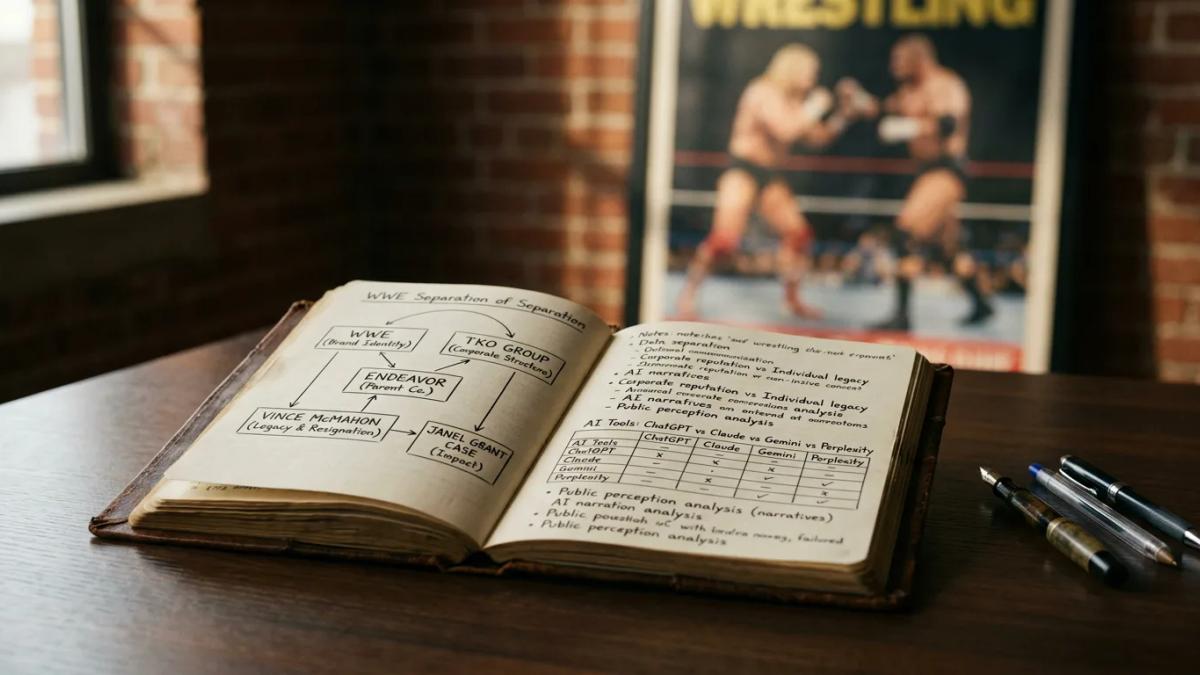 WRESTLING
WWE Separation of Separation
WWE
(Brand Identity)
TKO GROUP
(Corporate Structure)
ENDEAVOR
(Parent Co.)
VINCE McMAHON
(Legacy & Resignation)
JANEL GRANT
CASE
(Impact)
• Notes: wrestling
• Data separation
–
– Corporate reputation vs Individual legacy
– reputation
• AI narratives
• Corporate reputation vs Individual legacy
– analysis
– AI narratives
– Public perception analysis
AI Tools: ChatGPT vs Claude vs Gemini vs Perplexity
AI Tools ChatGPT Claude Gemini Perplexity
ChatGPT x – x –
Claude – · – ✓
Gemini – x ✓ x
Perplexity – – – ✓
• Public perception analysis (narratives)
AI narration analysis
• Public with failured
• Public perception analysis